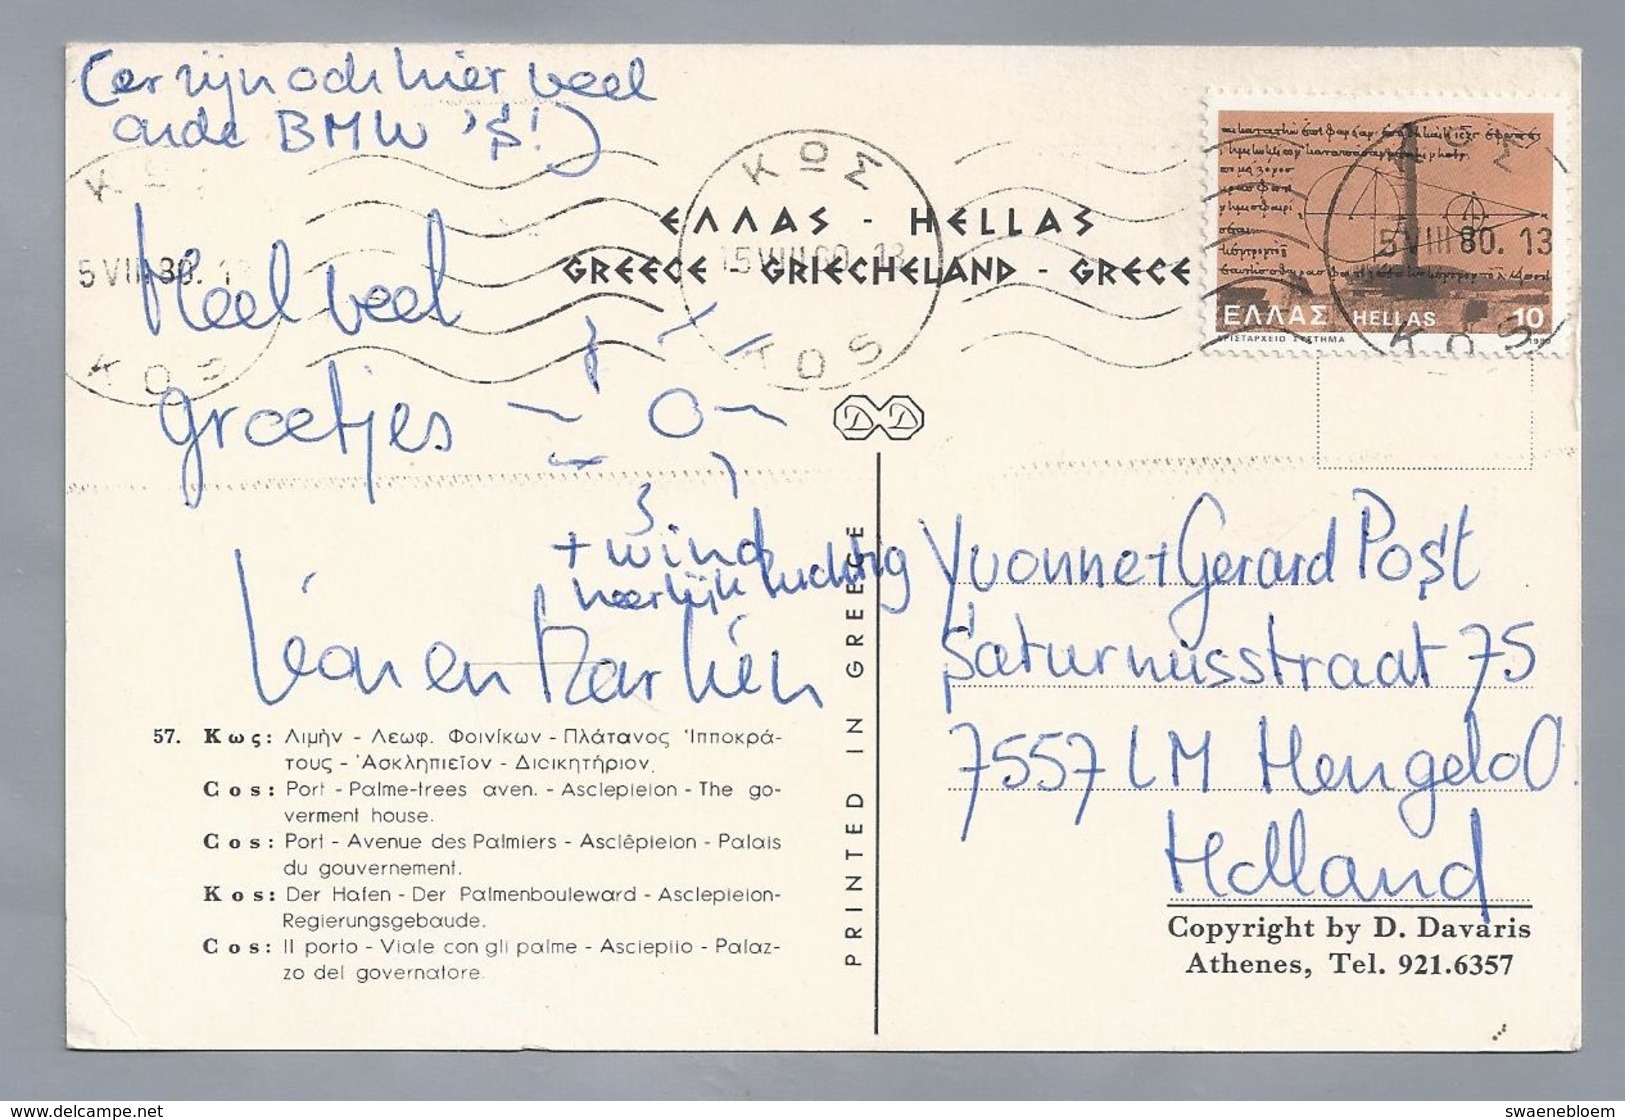 (er zijn ook hier veel
oude BMW 's!)
ΚΩΣ
ΕΛΛΑΣ - HELLAS
GREECE - GRIECHELAND - GRECE
5 VIII 80. 13
5 VIII 80. 13
5 VIII 80. 13
KOS
ΕΛΛΑΣ HELLAS 10
ΑΡΙΣΤΑΡΧΕΙΟ ΣΥΣΤΗΜΑ
1980
Heel veel
groetjes
+ wind
heerlijk luchtig
Léon en Marlien
Yvonne + Gerard Post
Saturnusstraat 75
7557 LM Hengelo O.
Holland
57. Κως: Λιμὴν - Λεωφ. Φοινίκων - Πλάτανος Ἱπποκρά-
τους - Ἀσκληπιεῖον - Διοικητήριον.
Cos: Port - Palme-trees aven. - Asclepieion - The go-
verment house.
Cos: Port - Avenue des Palmiers - Asclêpieion - Palais
du gouvernement.
Kos: Der Hafen - Der Palmenbouleward - Asclepieion-
Regierungsgebaude.
Cos: Il porto - Viale con gli palme - Asclepiio - Palaz-
zo del governatore.
PRINTED IN GREECE
Copyright by D. Davaris
Athenes, Tel. 921.6357
https://www.delcampe.net
swaenebloem